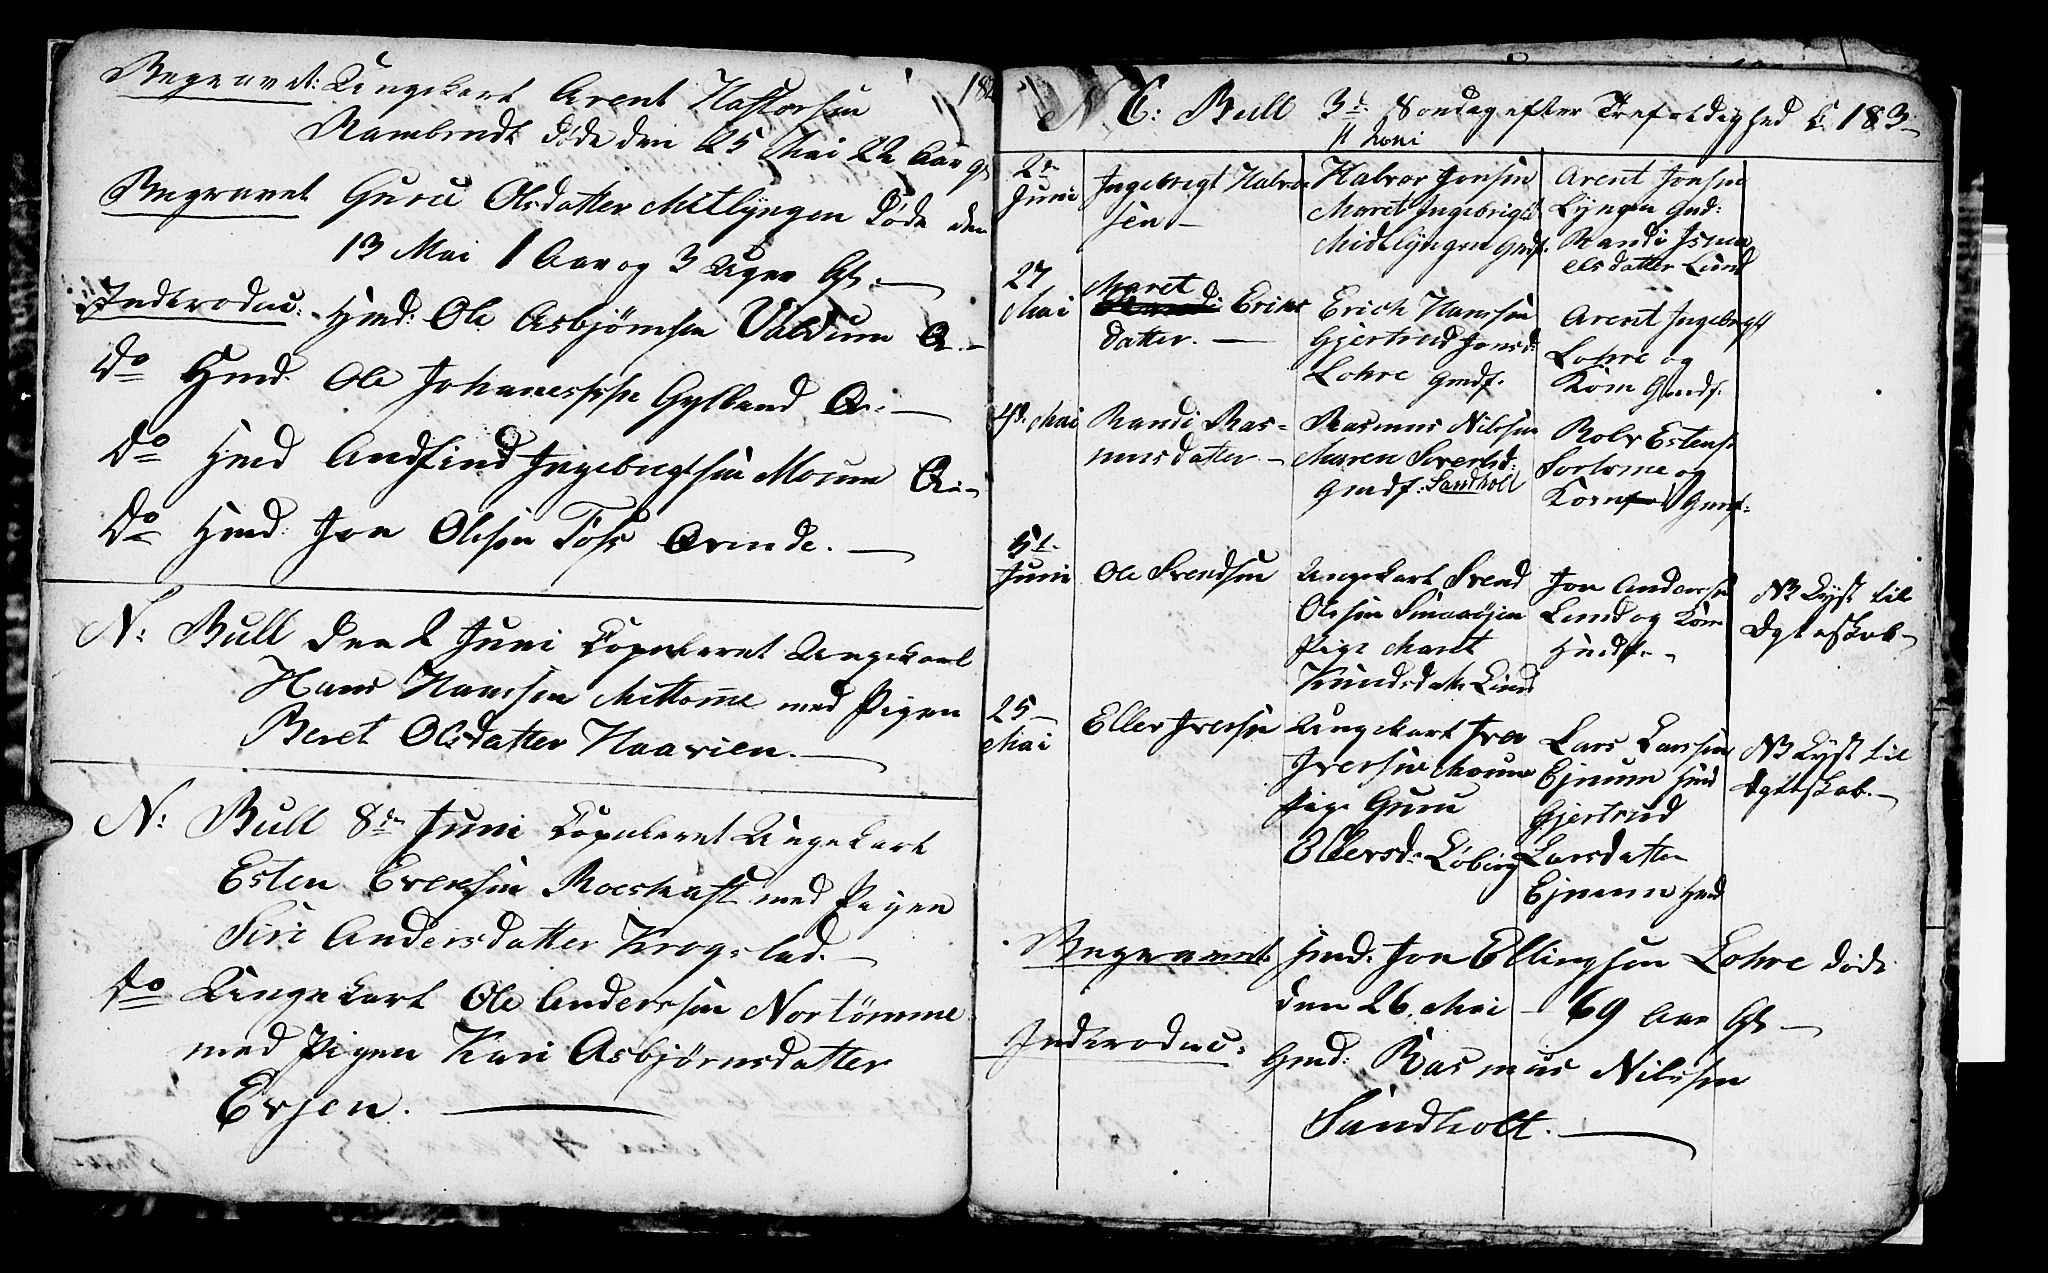 Begravet: Ungekarl Arent Hastorsen 182
Rambrudt døde den 25 Mai 22 Aar gl
Begravet Guru Olsdatter Mitlyngen døde den
13 Mai 1 Aar og 3 Uger Gl. —
Introduc: Hmd: Ole Asbjørnsen Valdum Q. —
Do Hmd. Ole Johanessen Gylland Q. —
Do Hmd Andfind Ingebrigtsen Moum Q. —
Do Hmd: Jon Olsen Foss Qvinde. —
N: Bull den 2 Juni Copuleret Ungekarl
Hans Hanssen Mittomme med Pigen
Beret Olsdatter Haavien. —
N: Bull 8de Juni Copuleret Ungekarl
Esten Evensen Roeshaft med Pigen
Siri Andersdatter Krogstad. —
Do Ungekarl Ole Anderssen Nortømme
med Pigen Kari Asbjørnsdatter
Evjen. —
N C: Bull 3d. Søndag efter Trefoldighed C 183–
Juni
2de
Juni
Ingebrigt Halvor
sen –
Halvor Jonsen
Maret Ingebrigtd
Midtlyngen Gmdf.
Arent Jonsen
Lyngen Gmd:
Randi Ismaelsdatter Lund
27
Mai
Maret
Erics
datter. —
Erich Hanssen
Gjertrud Jonsd:
Lohre Gmdf.
Arent Ingebrigts
Lohre og
Kone Gmdf.
4de Mai
Randi Ras-
musdatter –
Rasmus Nilssen
Maren Sivertsd:
Gmdf: Sandholt
Rolv Estens
Sortome og
Kone Gmdf:
5t.
Juni
Ole Svendsen
Ungekarl Svend
Olssen Smaaøjen
Pige Marit
Knudsdatter Lund
Jon Anderssen
Lund og Kone
Hmdf. –
NB Lyst til
Ægteskab –
25 –
Mai
Eller Iversen
Ungekarl Iver
Iversen Moum
Pige Guru
Ellersd: Løberg
Lars Larssen
Ejnum Hmd
Gjertrud
Larsdatter
Ejnum Hmd
NB Lyst til
Ægteskab. –
Begravet: Hmd: Jon Ellingsen Lohre døde
den 26. Mai – 69 Aar Gl. —
Introduc: Gmd: Rasmus Nilssen
Sandholt. —